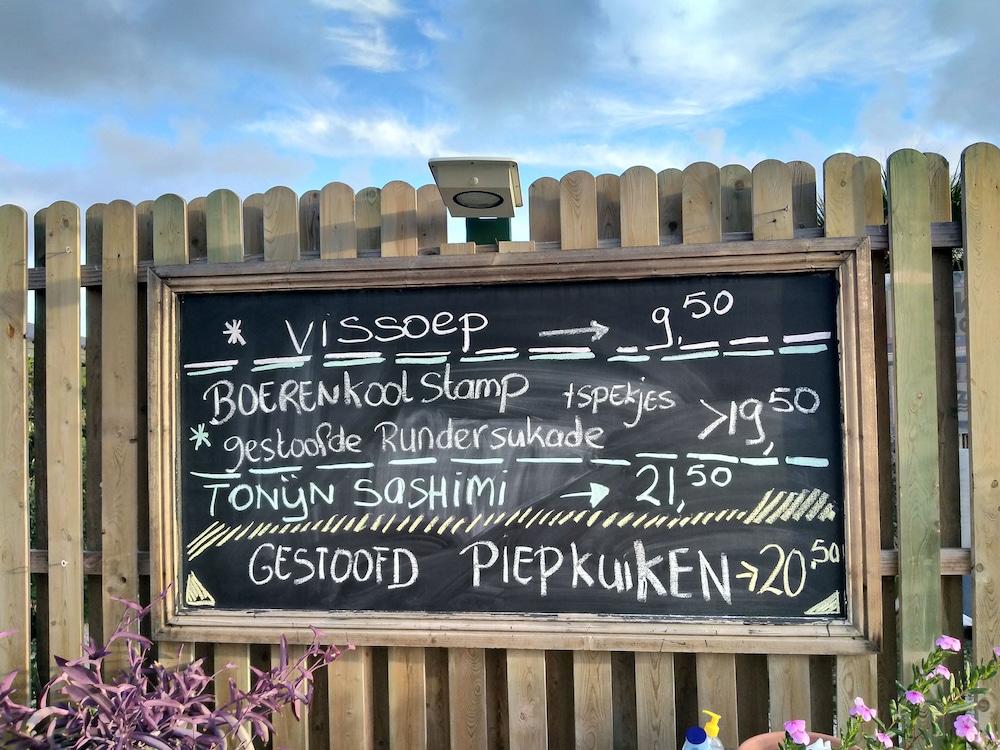 * Vissoep → 9,50
BOERENKOOL Stamp +spekjes
* gestoofde Rundersukade >19,50
TONIJN SASHIMI → 21,50
GESTOOFD PIEPKUIKEN → 20,50